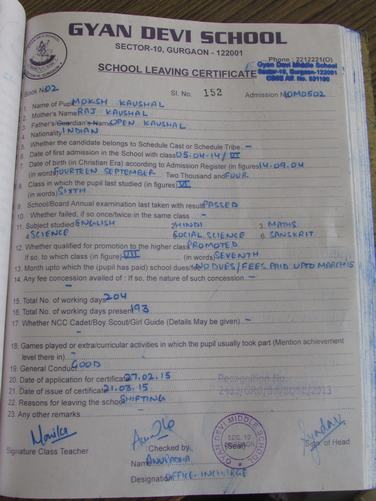 GYAN DEVI SCHOOL
SECTOR-10, GURGAON - 122001
Phone : 2212221(O)
Gyan Devi Middle School
Sector-10, Gurgaon-122001
SCHOOL LEAVING CERTIFICATE
Book No. 02 Sl. No. 152 Admission No. M0502
1. Name of Pupil MOKSH KAUSHAL
2. Mother's Name RAJ KAUSHAL
3. Father's/Guardian's Name OPEN KAUSHAL
4. Nationality INDIAN
5. Whether the candidate belongs to Schedule Cast or Schedule Tribe -
6. Date of first admission in the School with class 05.04.14/ VI
7. Date of birth (in Christian Era) according to Admission Register (in figures) 14.09.04
(in words) FOURTEEN SEPTEMBER Two Thousand and FOUR
8. Class in which the pupil last studied (in figures) VI
(in words) SIXTH
9. School/Board Annual examination last taken with result PASSED
10. Whether failed, if so once/twice in the same class -
11. Subject studied 1. ENGLISH 2. HINDI 3. MATHS
4. SCIENCE 5. SOCIAL SCIENCE 6. SANSKRIT
12. Whether qualified for promotion to the higher class PROMOTED
If so, to which class (in figure) VII (in words) SEVENTH
13. Month upto which the (pupil has paid) school dues/fee NO DUES/FEES PAID UPTO MARCH 15
14. Any fee concession availed of : If so, the nature of such concession -
15. Total No. of working days 204
16. Total No. of working days present 193
17. Whether NCC Cadet/Boy Scout/Girl Guide (Details May be given) -
18. Games played or extra/curricular activities in which the pupil usually took part (Mention achievement
level there in) -
19. General Conduct GOOD
20. Date of application for certificate 27.02.15
21. Date of issue of certificate 21.03.15
22. Reasons for leaving the school SHIFTING
23. Any other remarks -
Recognition No.
Monika
Signature Class Teacher
Checked by
Name ANURADHA
Designation OFFICE INCHARGE
GYAN DEVI MIDDLE SCHOOL
SEC. 10
(Seal)
of Head